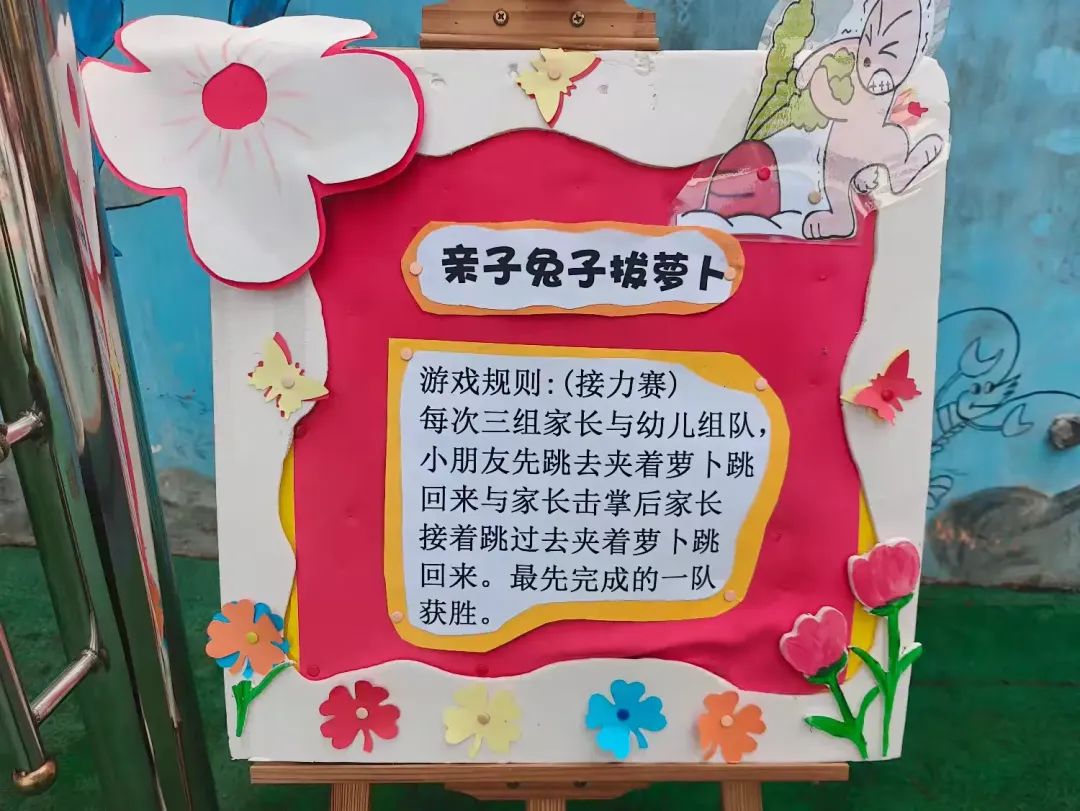 亲子兔子拔萝卜
游戏规则:(接力赛)
每次三组家长与幼儿组队，
小朋友先跳去夹着萝卜跳
回来与家长击掌后家长
接着跳过去夹着萝卜跳
回来。最先完成的一队
获胜。